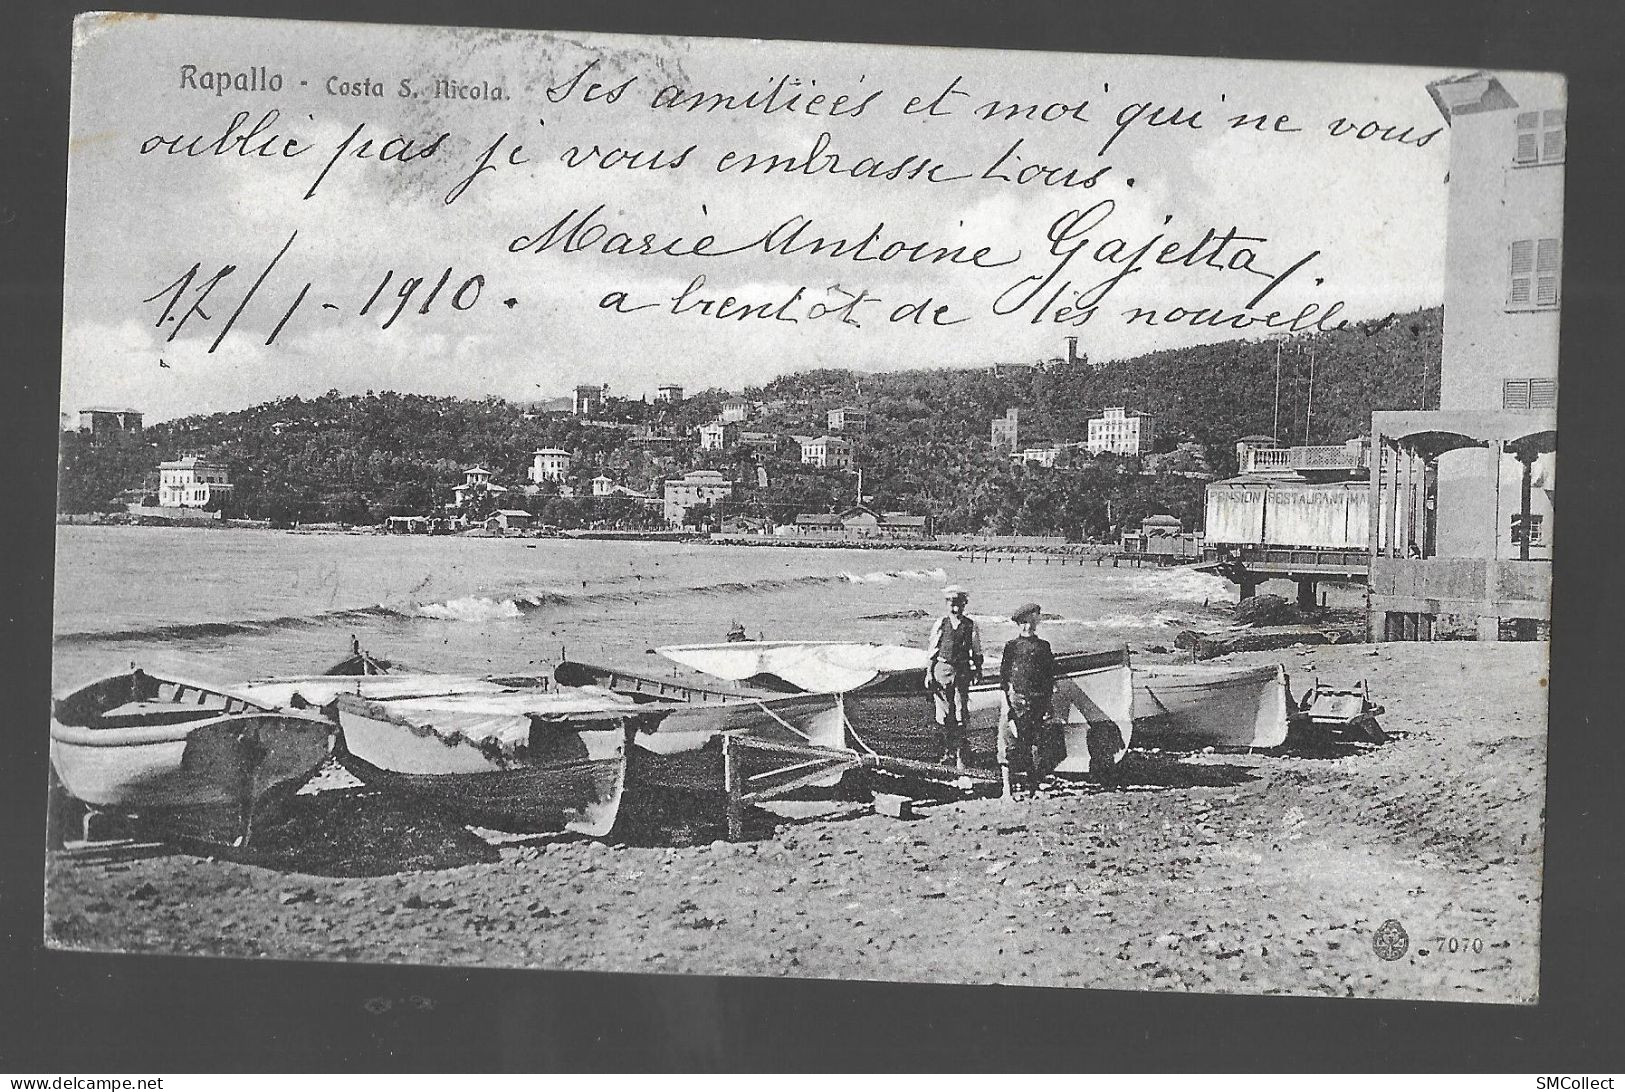 Rapallo - Costa S. Nicola.
Ses amitiées et moi qui ne vous
oublie pas je vous embrasse tous.
Marie Antoine Gajetta.
17/1-1910. a bientôt de tes nouvelles.
PENSION RESTAURANT
7070
SMCollect